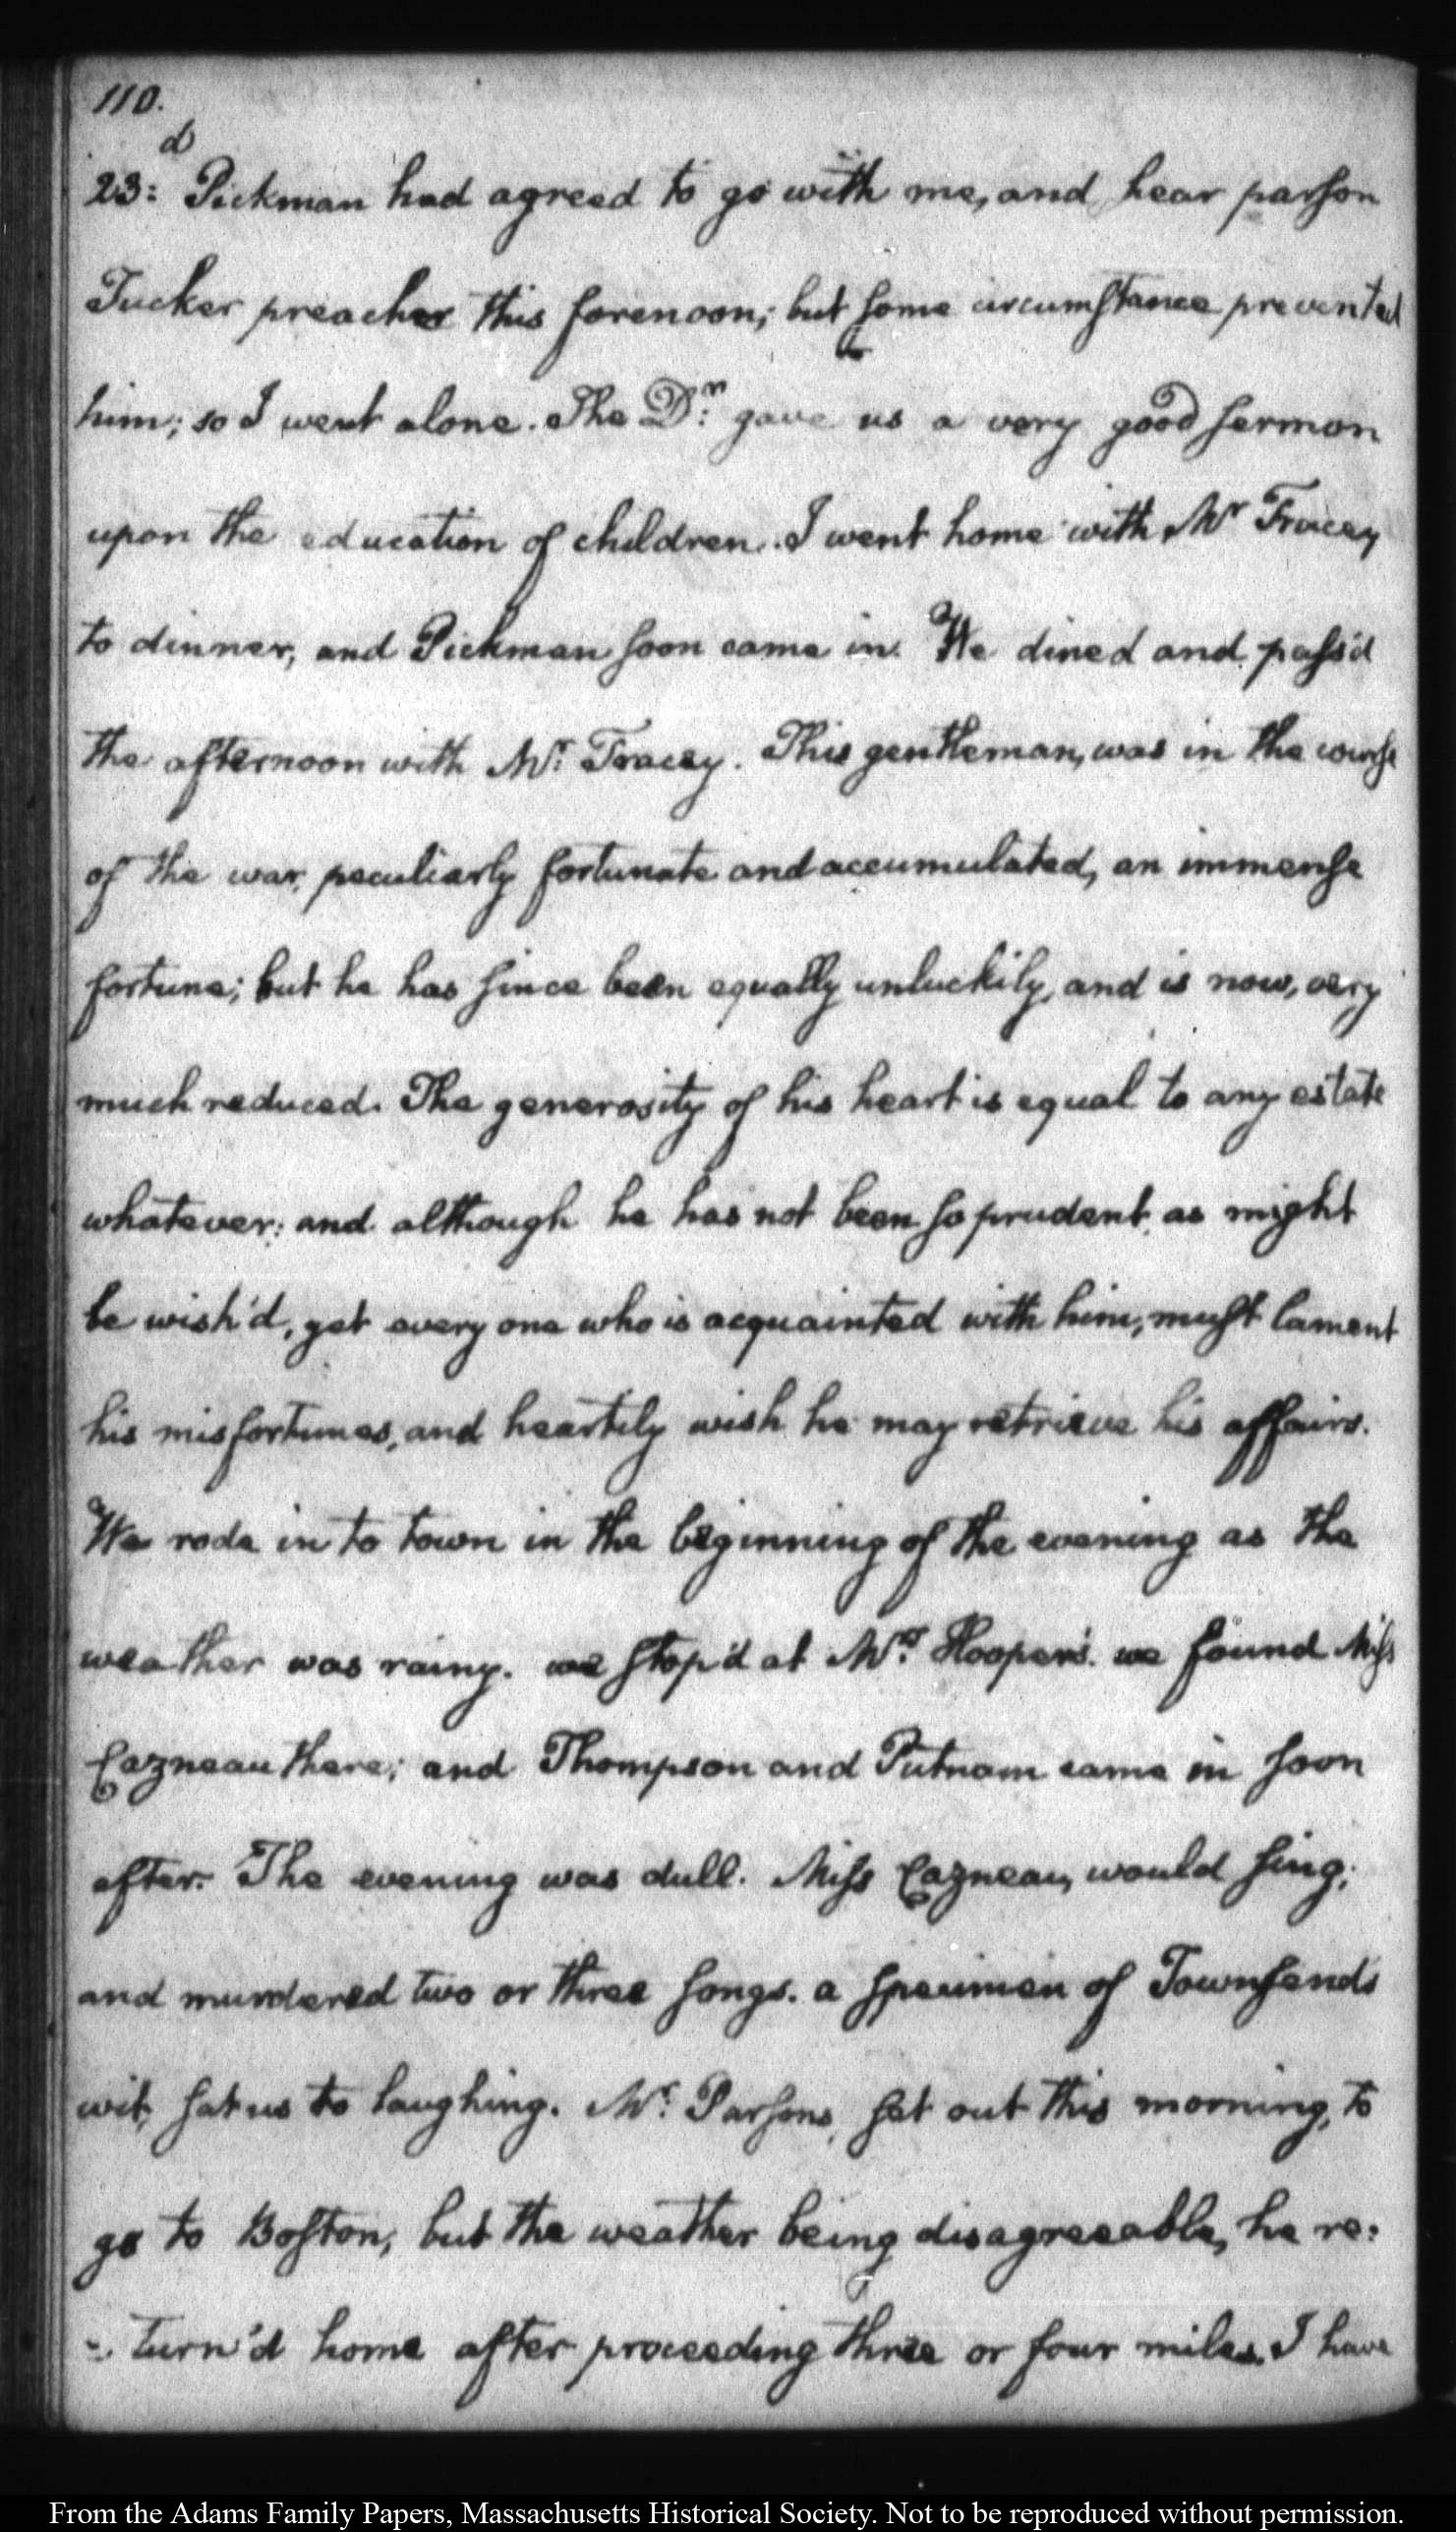 110.
23:d Pickman had agreed to go with me, and hear parson
Tucker preacher this forenoon; but some circumstance prevented
him; so I went alone. The Dr: gave us a very good sermon
upon the education of children. I went home with Mr Tracey
to dinner, and Pickman soon came in. We dined and pass'd
the afternoon with Mr: Tracey. This gentleman, was in the course
of the war, peculiarly fortunate and accumulated, an immense
fortune; but he has since been equally unluckily, and is now, very
much reduced. The generosity of his heart is equal to any estate
whatever: and although he has not been so prudent, as might
be wish'd, yet every one who is acquainted with him, must lament
his misfortunes, and heartily wish he may retrieve his affairs.
We rode in to town in the beginning of the evening as the
weather was rainy. we stop'd at Mrs: Hooper's. we found Miss
Cazneau there; and Thompson and Putnam came in soon
after. The evening was dull. Miss Cazneau, would sing;
and murdered two or three songs. a specimen of Townsends
wit, set us to laughing. Mr: Parsons, set out this morning, to
go to Boston, but the weather being disagreeable, he re:
:turn'd home after proceeding three or four miles. I have
From the Adams Family Papers, Massachusetts Historical Society. Not to be reproduced without permission.